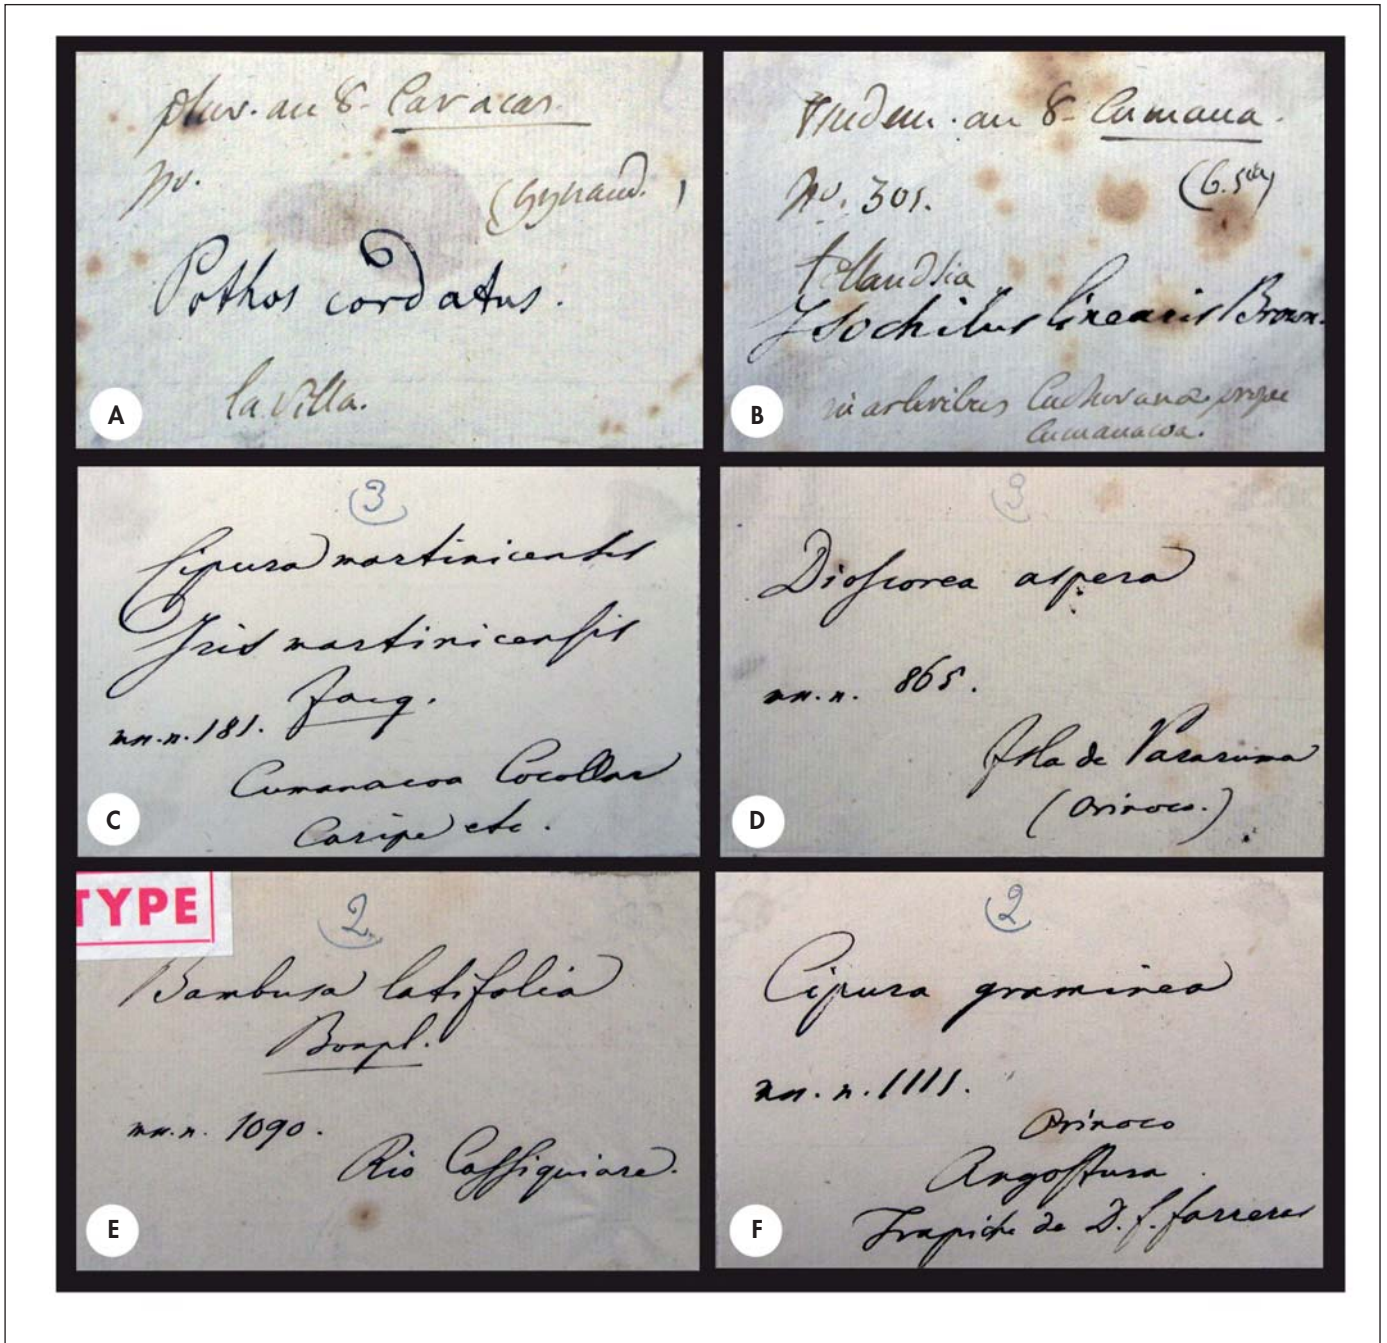 pluv. an 8- Caracas.
no.
(Gynand.)
Pothos cordatus.
la Villa.
A
Vendem. an 8- Cumana.
(G. 5ta)
no. 301.
tillandsia
Isochilus linearis Brown.
in arboribus prope
Cumanacoa.
B
3
Cipura martinicensis
Iris martinicensis
Jacq.
mn. n. 181.
Cumanacoa Cocollar
Caripe etc.
C
3
Dioscorea aspera
mn. n. 865.
Isla de Pararuma
(Orinoco.)
D
TYPE
2
Bambusa latifolia
Bonpl.
mn. n. 1090.
Rio Cassiquiare.
E
2
Cipura graminea
mn. n. 1111.
Orinoco
Angostura
Trapiche de D. f. farreras
F